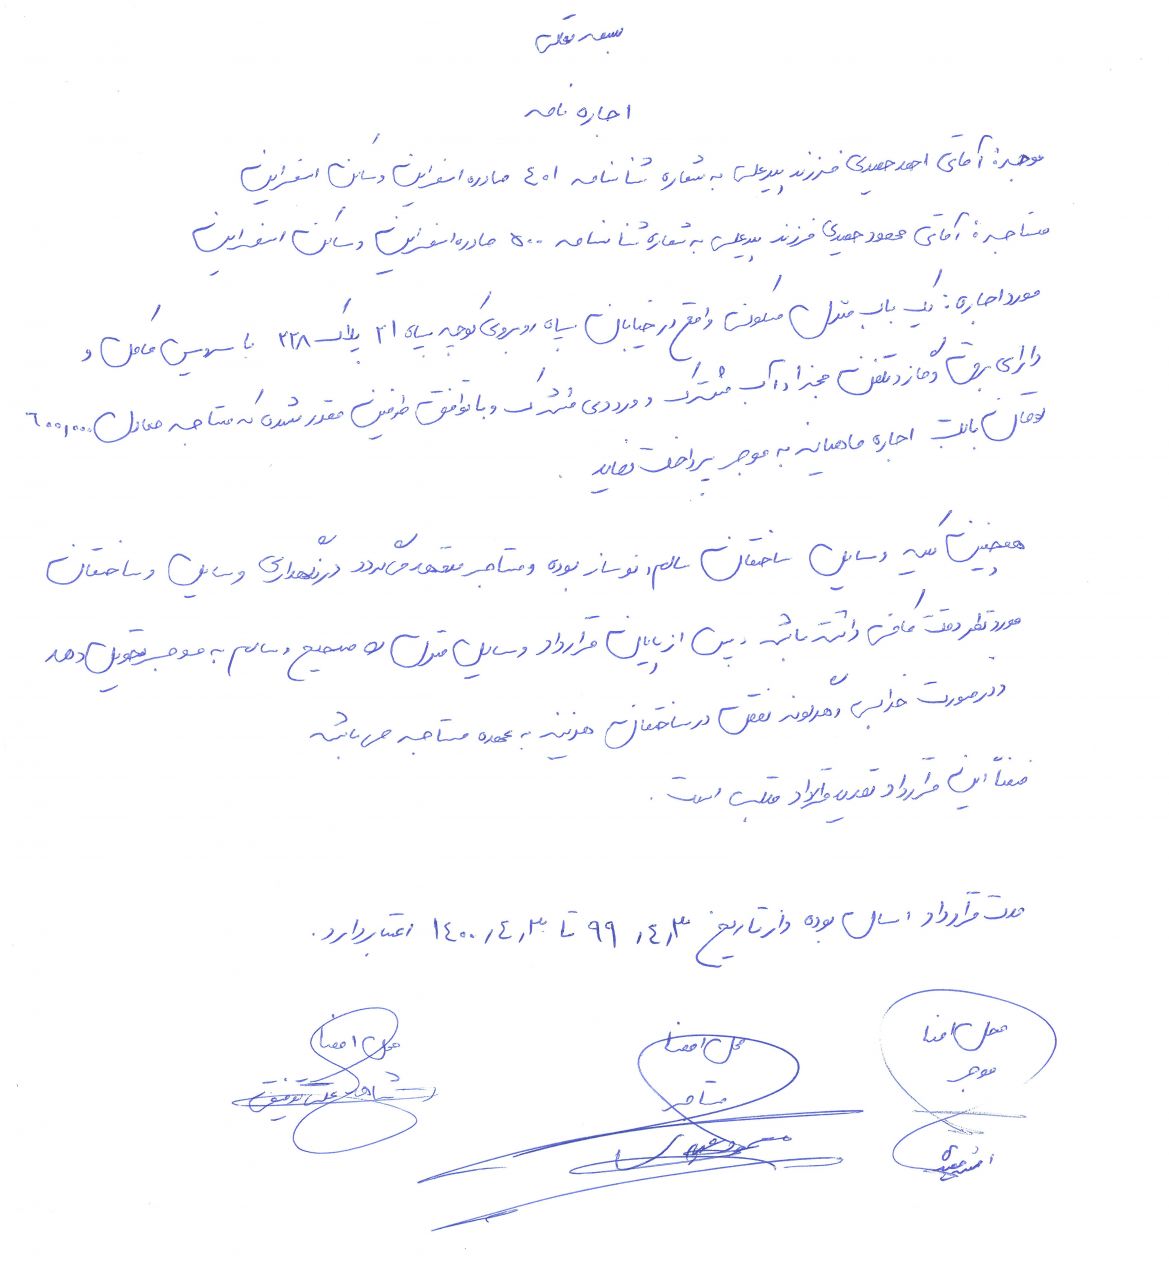 بسمه تعالی
اجاره نامه
موجر: آقای احمد حمیدی فرزند عیدعلی به شماره شناسنامه ٤٠١ صادره اسفراین و ساکن اسفراین
مستاجر: آقای محمود حمیدی فرزند عیدعلی به شماره شناسنامه ٥٠٠ صادره اسفراین و ساکن اسفراین
مورد اجاره: یک باب منزل مسکونی واقع در خیابان سپاه روبروی کوچه سپاه ٢١ پلاک ٢٢٨ با سرویس کامل و
دارای برق و گاز و تلفن مجزا و آب مشترک و ورودی مشترک و با توافق طرفین مقرر شده که مستاجر معادل ٦٠٠,٠٠٠
تومان بابت اجاره ماهیانه به موجر پرداخت نماید.
همچنین کلیه وسایل ساختمان سالم و نوساز بوده و مستاجر متعهد می‌گردد در نگهداری وسایل و ساختمان
مورد نظر دقت کافی داشته باشد و پس از پایان قرارداد وسایل منزل صحیح و سالم به موجر تحویل دهد
و در صورت خرابی و هرگونه نقص در ساختمان هزینه به عهده مستاجر می باشد
ضمناً این قرارداد تمدید قرارداد قبلی است.
مدت قرارداد ١ سال بوده و از تاریخ ٩٩,٤,٣ تا ١٤٠٠,٤,٣ اعتبار دارد.
محل امضا محل امضا محل امضا
موجر مستاجر شاهد